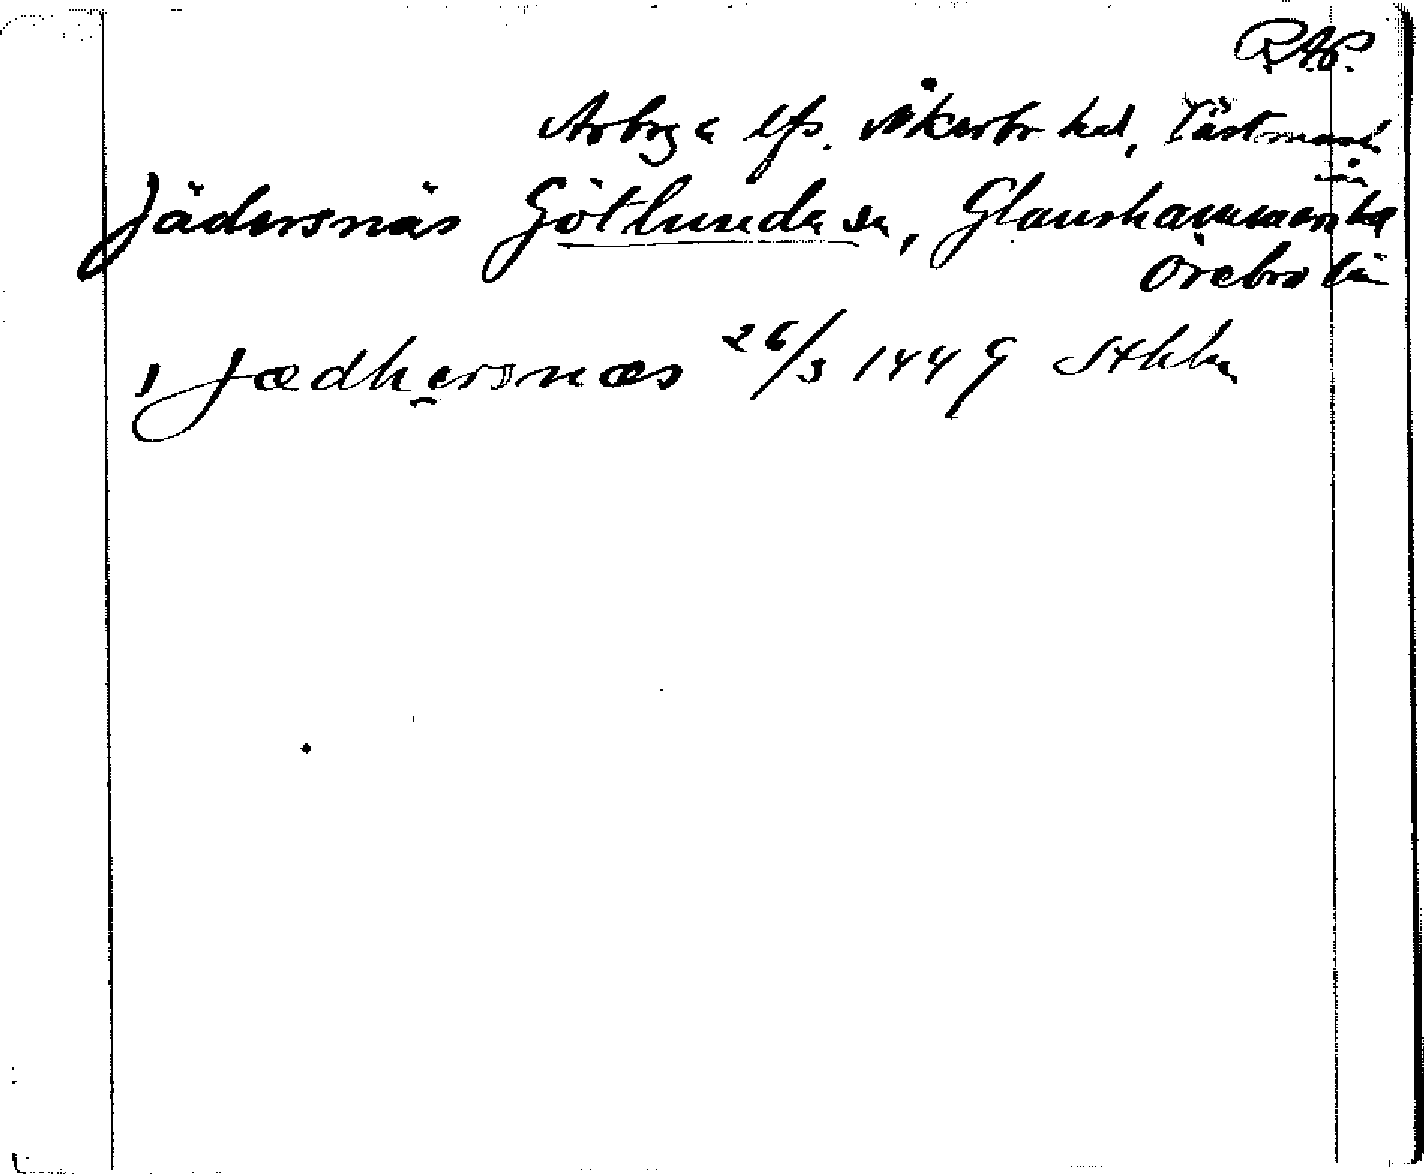 RAP.
Arboga lfs. Åkerbo hd, Västmanl.
län
Jädersnäs Götlunda sn, Glanshammars hd
Örebro län
i Jædhersnæs 26/3 1449 Sthlm